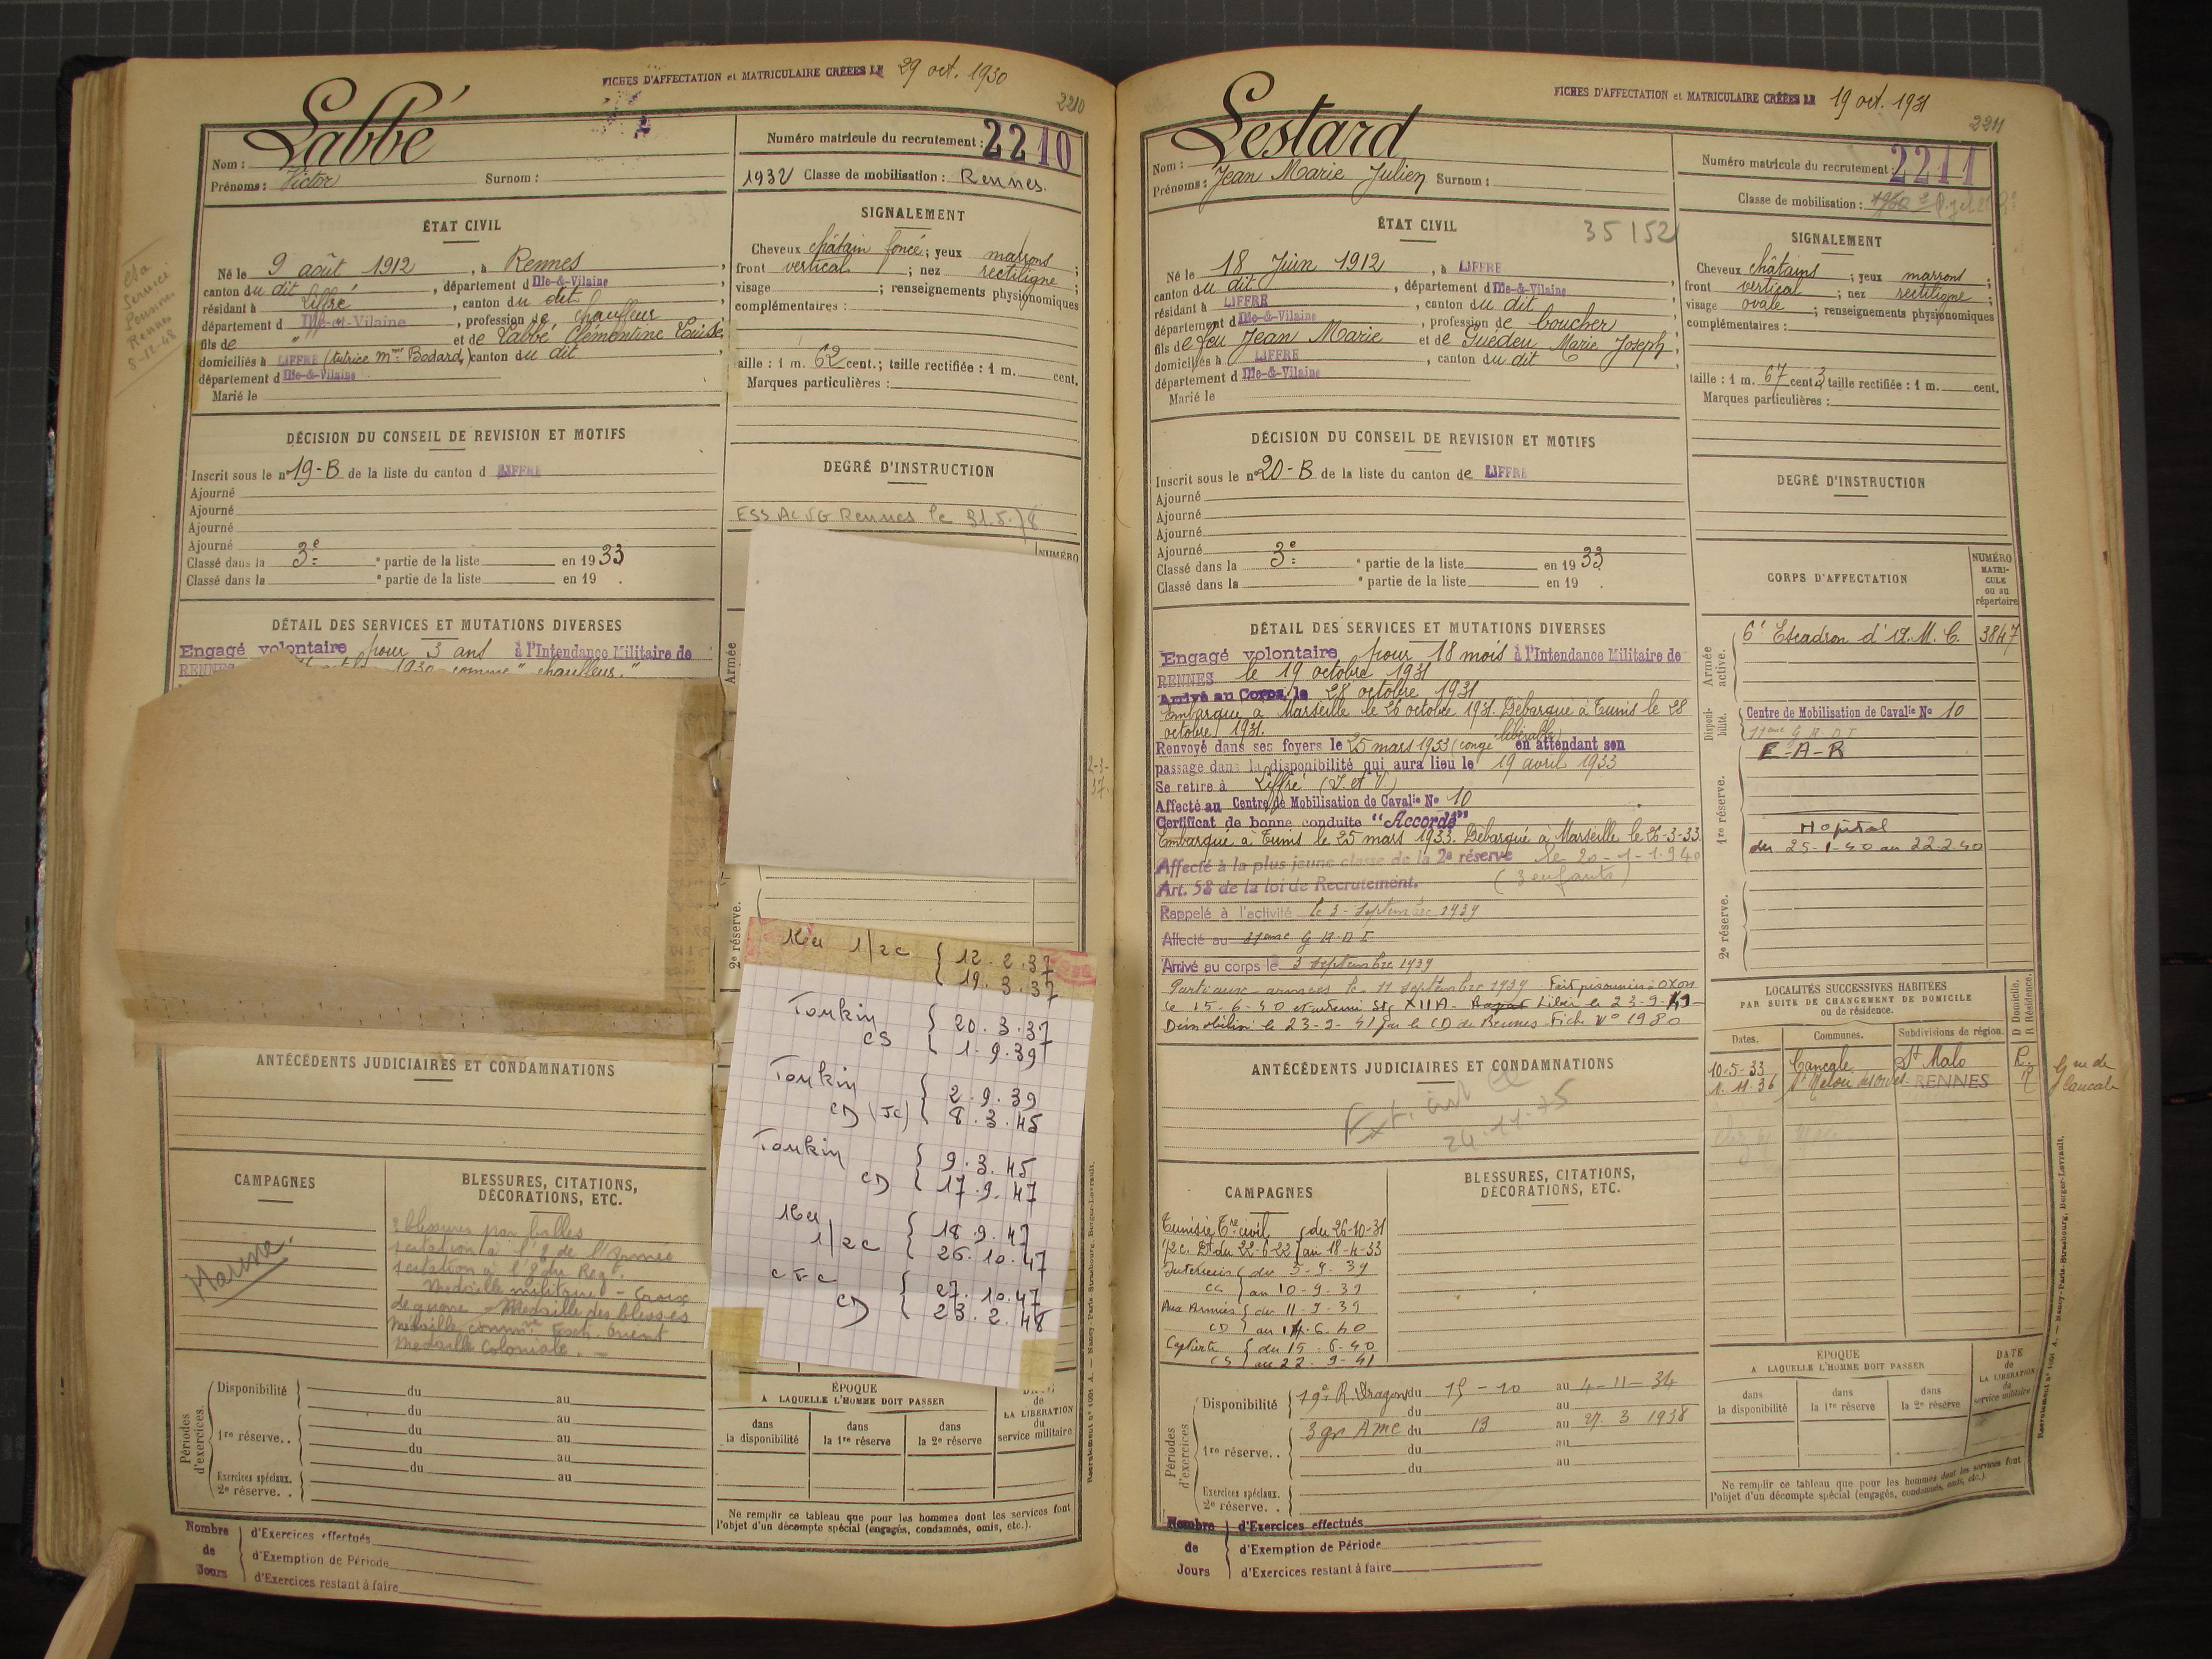 FICHES D'AFFECTATION et MATRICULAIRE CRÉÉES LE 29 oct. 1930
2210
Nom : Labbé
Prénoms : Victor Surnom :
Numéro matricule du recrutement : 2210
1932 Classe de mobilisation : Rennes.
ÉTAT CIVIL
Né le 9 août 1912, à Rennes,
canton du dit, département d Ille-&-Vilaine,
résidant à Liffré, canton du dit,
département d Ille-et-Vilaine, profession de chauffeur
fils de " et de Labbé Clémentine Louise,
domiciliés à LIFFRÉ (tutrice Mme Bodard,) canton du dit,
département d Ille-&-Vilaine
Marié le
SIGNALEMENT
Cheveux châtain foncé; yeux marrons;
front vertical; nez rectiligne;
visage ; renseignements physionomiques
complémentaires :
aille : 1 m. 62 cent.; taille rectifiée : 1 m. cent.
Marques particulières :
Service
Pensions
Rennes
8-12-48
DÉCISION DU CONSEIL DE REVISION ET MOTIFS
Inscrit sous le n° 19-B de la liste du canton d LIFFRÉ
Ajourné
Ajourné
Ajourné
Ajourné
Classé dans la 3e ° partie de la liste en 1933
Classé dans la ° partie de la liste en 19 .
DEGRÉ D'INSTRUCTION
Rennes le 31.5.
NUMÉRO
DÉTAIL DES SERVICES ET MUTATIONS DIVERSES
Engagé volontaire pour 3 ans à l'Intendance Militaire de
RENNES 1930 comme "chauffeur."
Armée
2e réserve.
16u 1/2c { 12.2.37
19.3.37
Tonkin { 20.3.37
CS 1.9.39
Tonkin { 2.9.39
CD (JC) 8.3.45
Tonkin { 9.3.45
CD 17.9.47
16u { 18.9.47
1/2c 26.10.47
{ 27.10.47
CD 23.2.48
ANTÉCÉDENTS JUDICIAIRES ET CONDAMNATIONS
CAMPAGNES
Marine.
BLESSURES, CITATIONS,
DÉCORATIONS, ETC.
3 blessures par balles
1 citation à l'O de l'Armée
1 citation à l'O du Regt.
Médaille militaire - Croix
de guerre - Médaille des blessés
Médaille comm.ve Extr. Orient
Médaille Coloniale. -
Périodes d'exercices.
Disponibilité du au
du au
1re réserve. . du au
du au
du au
Exercices spéciaux.
2e réserve. .
ÉPOQUE
A LAQUELLE L'HOMME DOIT PASSER
dans la disponibilité
dans la 1re réserve
dans la 2e réserve
de LA LIBERATION du service militaire
Ne remplir ce tableau que pour les hommes dont les services font
l'objet d'un décompte spécial (engagés, condamnés, omis, etc.).
Nombre de Jours
d'Exercices effectués
d'Exemption de Période
d'Exercices restant à faire
Recrutement n° 1001 A. — Nancy-Paris-Strasbourg, Berger-Levrault.
FICHES D'AFFECTATION et MATRICULAIRE CRÉÉES LE 19 oct. 1931
2211
Nom : Lestard
Prénoms : Jean Marie Julien Surnom :
Numéro matricule du recrutement : 2211
Classe de mobilisation :
ÉTAT CIVIL
35152
Né le 18 Juin 1912, à LIFFRÉ
canton du dit, département d Ille-&-Vilaine,
résidant à LIFFRÉ, canton du dit,
département d Ille-&-Vilaine, profession de boucher,
fils de feu Jean Marie et de Guedeu Marie Joseph,
domiciliés à LIFFRÉ, canton du dit,
département d Ille-&-Vilaine
Marié le
SIGNALEMENT
Cheveux châtains; yeux marrons;
front vertical; nez rectiligne;
visage ovale; renseignements physionomiques
complémentaires :
taille : 1 m. 67 cent 3; taille rectifiée : 1 m. cent.
Marques particulières :
DÉCISION DU CONSEIL DE REVISION ET MOTIFS
Inscrit sous le n° 20-B de la liste du canton de LIFFRÉ
Ajourné
Ajourné
Ajourné
Ajourné
Classé dans la 3e ° partie de la liste en 1933
Classé dans la ° partie de la liste en 19 .
DEGRÉ D'INSTRUCTION
DÉTAIL DES SERVICES ET MUTATIONS DIVERSES
Engagé volontaire pour 18 mois à l'Intendance Militaire de
RENNES le 19 octobre 1931
Arrivé au Corps le 28 octobre 1931
Embarqué à Marseille le 26 octobre 1931. Débarqué à Tunis le 28
octobre 1931.
Renvoyé dans ses foyers le 25 mars 1933 (congé libérable) en attendant son
passage dans la disponibilité qui aura lieu le 19 avril 1933
Se retire à Liffré (I. et V.)
Affecté au Centre de Mobilisation de Cavalie No 10
Certificat de bonne conduite "Accordé"
Embarqué à Tunis le 25 mars 1933. Débarqué à Marseille le 26-3-33.
Affecté à la plus jeune classe de la 2e réserve le 20-1-1940
Art. 58 de la loi de Recrutement. (3 enfants)
Rappelé à l'activité le 3 Septembre 1939
Affecté au 11eme G.R.D.I
Arrivé au corps le 3 septembre 1939
Parti aux armées le 11 Septembre 1939. Fait prisonnier à
le 15-6-40 et interné Stg XIIA. Libéré le 23-9-41
Démobilisé le 23-9-41 par le CD de Rennes Fiche N° 1980
CORPS D'AFFECTATION
NUMÉRO MATRICULE ou au répertoire
Armée active.
6e Escadron d'A.M.C. 3847
Disponibilité.
Centre de Mobilisation de Cavalie No 10
11eme G R D I
E-A-R
1re réserve.
Hopital
du 25-1-40 au 22-2-40
2e réserve.
LOCALITÉS SUCCESSIVES HABITÉES
PAR SUITE DE CHANGEMENT DE DOMICILE
ou de résidence.
Dates. Communes. Subdivisions de région. D Domicile. R Résidence.
10-5-33 Cancale St Malo R.
1-11-36 St Méloir des Ondes RENNES R
rue de Cancale
ANTÉCÉDENTS JUDICIAIRES ET CONDAMNATIONS
24-11-75
CAMPAGNES
Tunisie Tre civil { du 26-10-31
1/2c. Dt du 22-6-22 { au 18-4-33
Intérieur { du 3-9-39
CS { au 10-9-39
Aux Armées { du 11-9-39
CD { au 14-6-40
Captivité { du 15-6-40
CS { au 22-9-41
BLESSURES, CITATIONS,
DÉCORATIONS, ETC.
Périodes d'exercices
Disponibilité 19e R. Dragons du 15-10 au 4-11-34
du au
1re réserve. . 3 gr AMC du 13 au 27. 3 1938
du au
du au
Exercices spéciaux.
2e réserve. .
ÉPOQUE
A LAQUELLE L'HOMME DOIT PASSER
dans la disponibilité
dans la 1re réserve
dans la 2e réserve
DATE de LA LIBERATION du service militaire
Ne remplir ce tableau que pour les hommes dont les services font
l'objet d'un décompte spécial (engagés, condamnés, omis, etc.).
Nombre de Jours
d'Exercices effectués
d'Exemption de Période
d'Exercices restant à faire
Recrutement n° 1001 A. — Nancy-Paris-Strasbourg, Berger-Levrault.